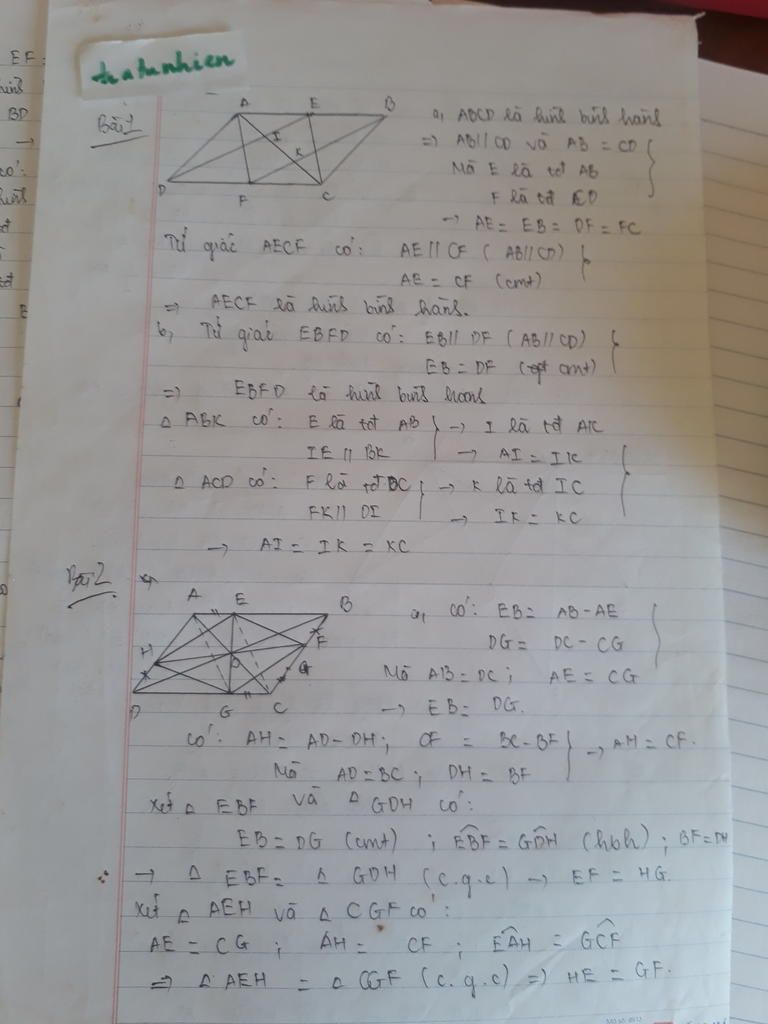 tuatunhien
Bài 1
A E B
I
K
D F C
a, ABCD là hình bình hành
=> AB // CD và AB = CD
Mà E là tđ AB
F là tđ CD
→ AE = EB = DF = FC
Tứ giác AECF có: AE // CF (AB // CD)
AE = CF (cmt)
=> AECF là hình bình hành.
b, Tứ giác EBFD có: EB // DF (AB // CD)
EB = DF (cmt)
=> EBFD là hình bình hành
Δ ABK có: E là tđ AB → I là tđ AK
IE // BK → AI = IK
Δ ACD có: F là tđ DC → K là tđ IC
FK // DI → IK = KC
→ AI = IK = KC
Bài 2
A E B
H F
O G
D G C
a, có: EB = AB - AE
DG = DC - CG
Mà AB = DC ; AE = CG
→ EB = DG.
Có: AH = AD - DH ; CF = BC - BF → AH = CF.
Mà AD = BC ; DH = BF
Xét Δ EBF và Δ GDH có:
EB = DG (cmt) ; EBF = GDH (hbh) ; BF = DH
→ Δ EBF = Δ GDH (c.g.c) → EF = HG.
Xét Δ AEH và Δ CGF có:
AE = CG ; AH = CF ; EAH = GCF
=> Δ AEH = Δ CGF (c.g.c) => HE = GF.